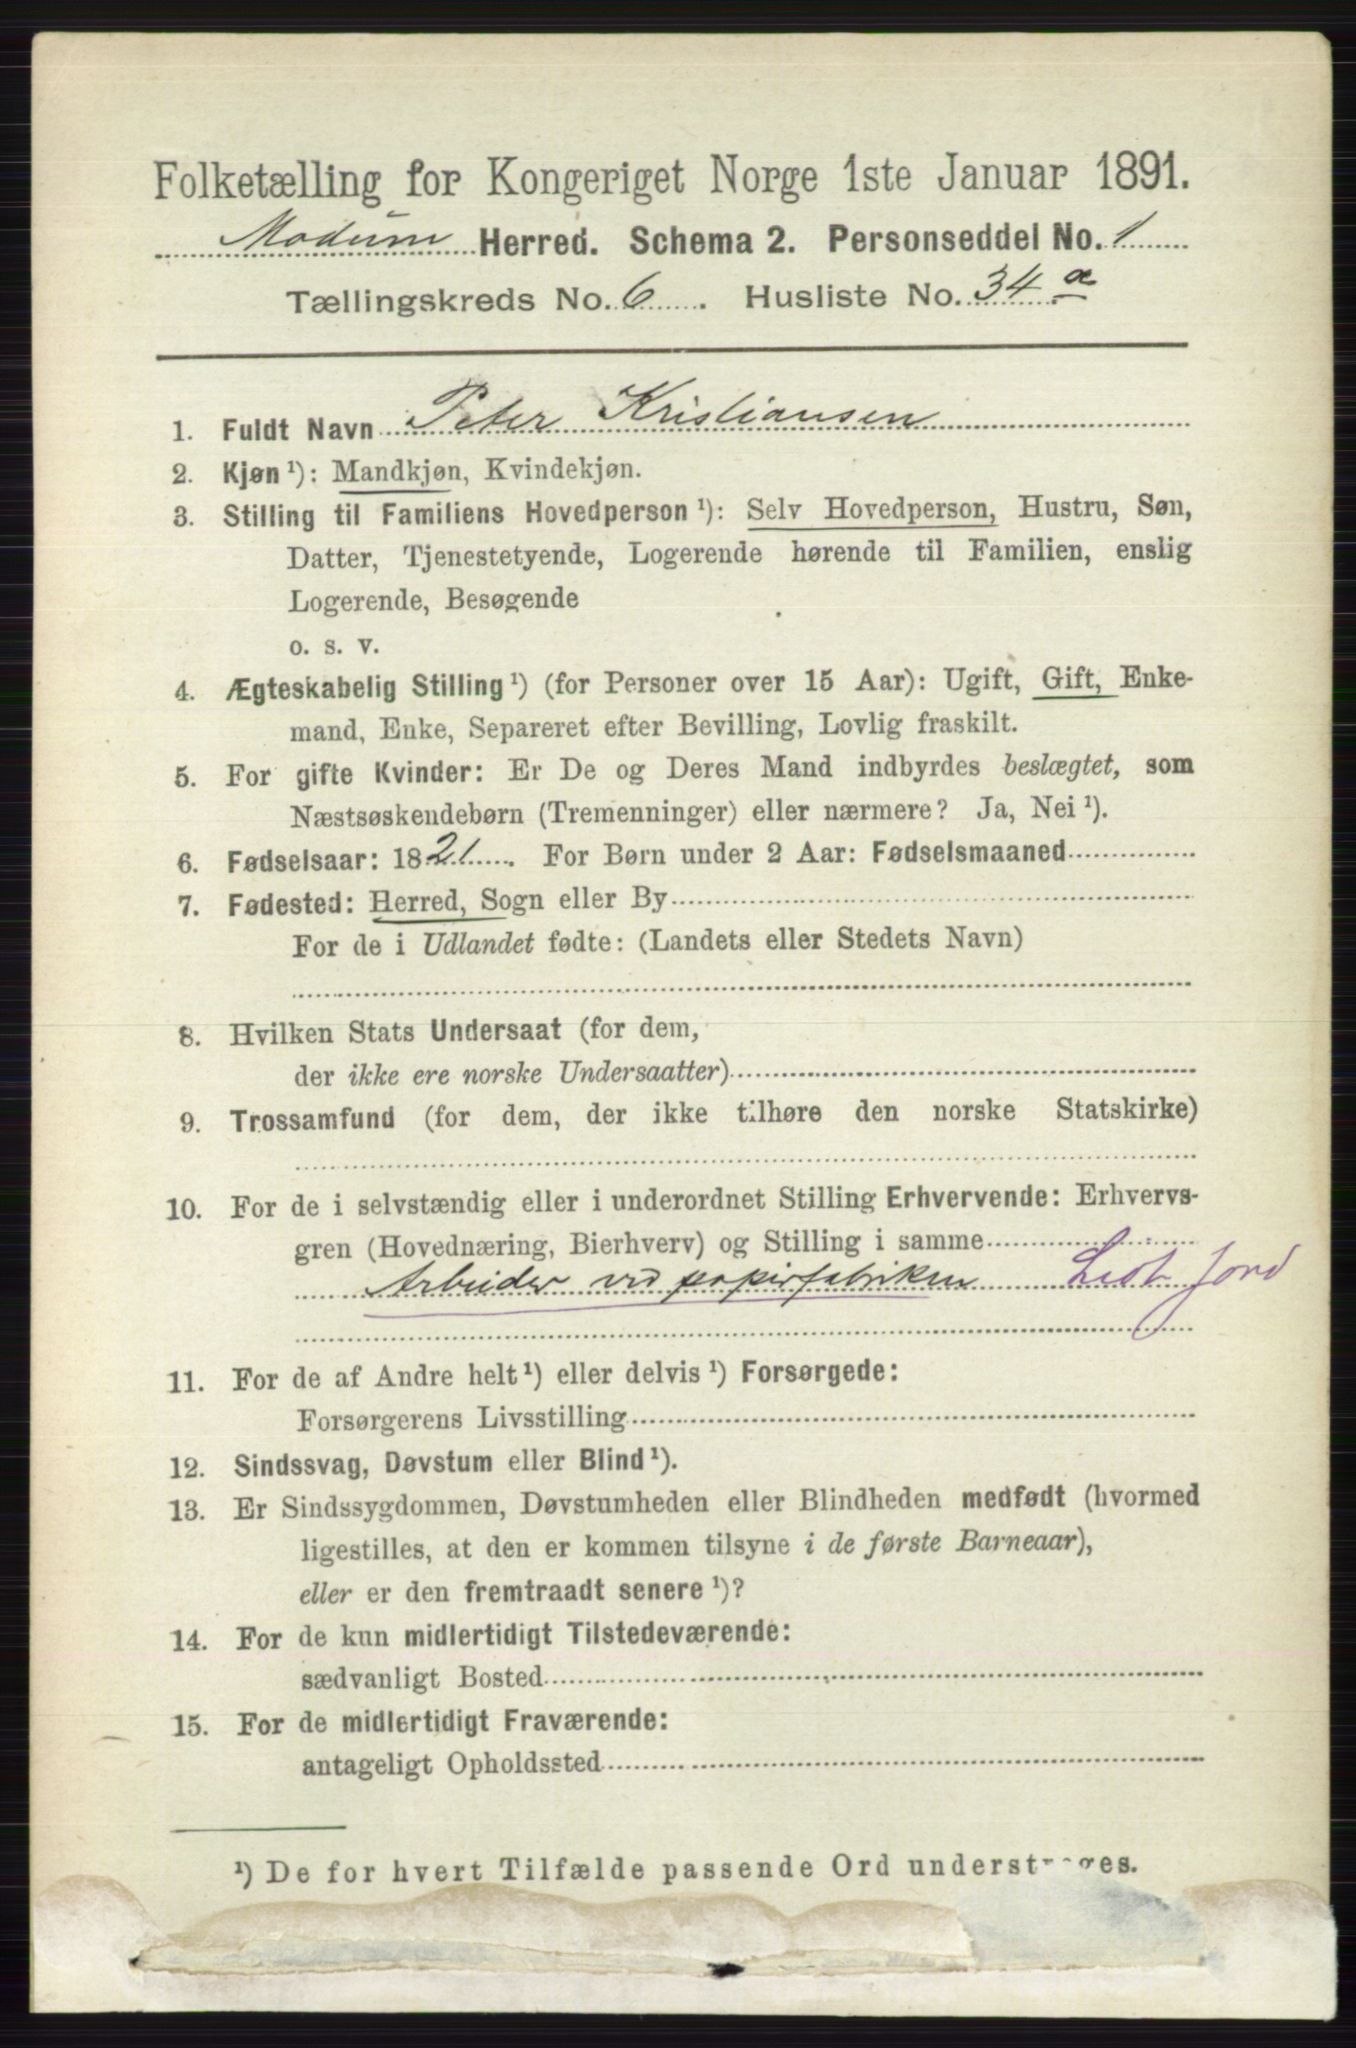 Folketælling for Kongeriget Norge 1ste Januar 1891.
Modum Herred. Schema 2. Personseddel No. 1
Tællingskreds No. 6. Husliste No. 34 a
1. Fuldt Navn Peter Kristiansen
2. Kjøn ¹): Mandkjøn, Kvindekjøn.
3. Stilling til Familiens Hovedperson ¹): Selv Hovedperson, Hustru, Søn,
Datter, Tjenestetyende, Logerende hørende til Familien, enslig
Logerende, Besøgende
o. s. v.
4. Ægteskabelig Stilling ¹) (for Personer over 15 Aar): Ugift, Gift, Enke-
mand, Enke, Separeret efter Bevilling, Lovlig fraskilt.
5. For gifte Kvinder: Er De og Deres Mand indbyrdes beslægtet, som
Næstsøskendebørn (Tremenninger) eller nærmere? Ja, Nei ¹).
6. Fødselsaar: 1821. For Børn under 2 Aar: Fødselsmaaned
7. Fødested: Herred, Sogn eller By
For de i Udlandet fødte: (Landets eller Stedets Navn)
8. Hvilken Stats Undersaat (for dem,
der ikke ere norske Undersaatter)
9. Trossamfund (for dem, der ikke tilhøre den norske Statskirke)
10. For de i selvstændig eller i underordnet Stilling Erhvervende: Erhvervs-
gren (Hovednæring, Bierhverv) og Stilling i samme
Arbeider ved papirfabriken Lidt Jord
11. For de af Andre helt ¹) eller delvis ¹) Forsørgede:
Forsørgerens Livsstilling
12. Sindssvag, Døvstum eller Blind ¹).
13. Er Sindssygdommen, Døvstumheden eller Blindheden medfødt (hvormed
ligestilles, at den er kommen tilsyne i de første Barneaar),
eller er den fremtraadt senere ¹)?
14. For de kun midlertidigt Tilstedeværende:
sædvanligt Bosted
15. For de midlertidigt Fraværende:
antageligt Opholdssted
¹) De for hvert Tilfælde passende Ord understreges.